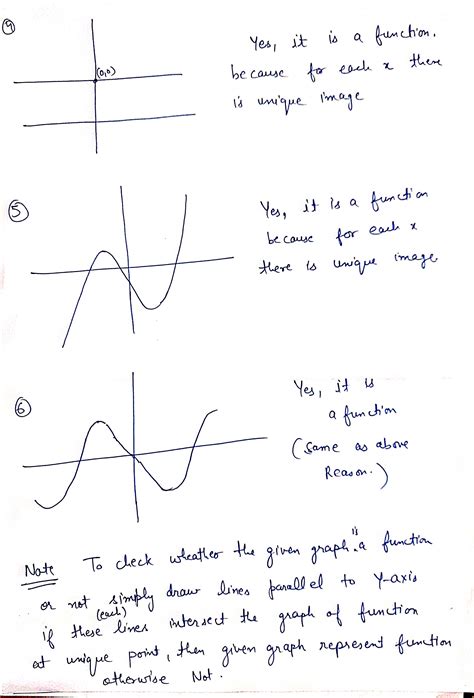 ④
(0,0)
Yes, it is a function.
because for each x there
is unique image
⑤
Yes, it is a function
because for each x
there is unique image
⑥
Yes, it is
a function
(same as above
Reason.)
Note To check wheather the given graph is a function
or not simply draw lines parallel to Y-axis
if these (each) lines intersect the graph of function
at unique point, then given graph represent function
otherwise Not.